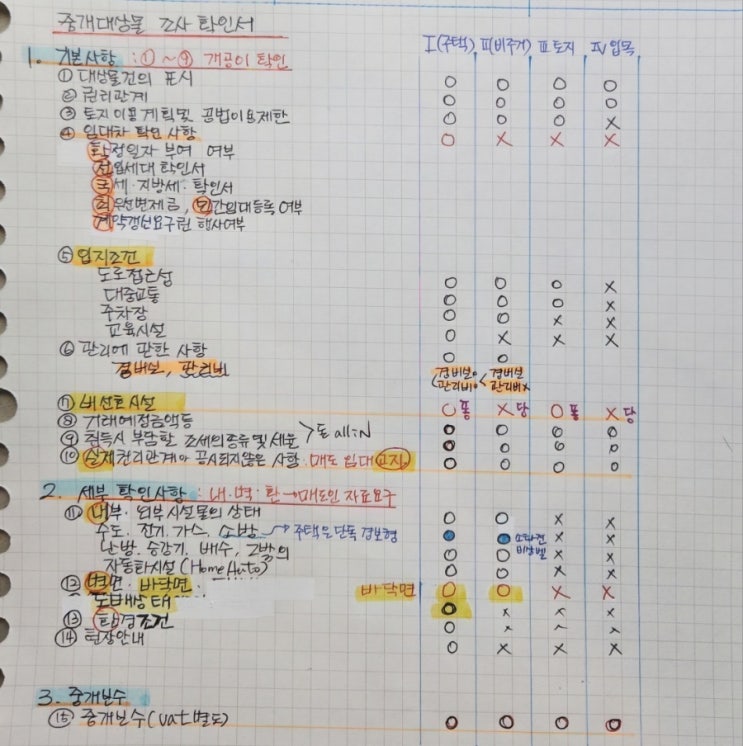 중개대상물 조사 확인서
Ⅰ(주택) Ⅱ(비주거) Ⅲ 토지 Ⅳ 입목
1. 기본사항 : ①~⑨ 개공이 확인
① 대상물건의 표시 O O O O
② 권리관계 O O O O
③ 토지이용계획및 공법이용제한 O O O X
④ 임대차 확인 사항 O X X X
확정일자 부여 여부
전입세대 확인서
국세·지방세: 확인서
최우선변제금, 민간임대등록여부
계약갱신요구권 행사여부
⑤ 입지조건
도로접근성 O O O X
대중교통 O O O X
주차장 O O X X
교육시설 O X X X
⑥ 관리에 관한 사항 O O
경비실, 관리비 경비실O 관리비O < 경비실 관리비X
⑦ 비선호시설 O X O X
⑧ 거래예정금액등 O O O O
⑨ 취득시 부담할 조세의 종류및세율 > 돈 all iN O O O O
⑩ 실제권리관계와 공시되지않은 사항: 매도 임대 고지 O O O O
2. 세부 확인사항 : 내·벽·환→매도인 자료요구
⑪ 내부·외부시설물의 상태 O O X X
수도·전기·가스·소방 → 주택은 단독경보형 소화전 비상벨 X X
난방·승강기·배수· O O X X
자동화시설(Home Auto) O O X X
⑫ 벽면·바닥면· 바닥면 O O X X
도배상태 O X X X
⑬ 환경조건 O X X X
⑭ 현장안내 O X X X
3. 중개보수
⑮ 중개보수(vat별도) O O O O